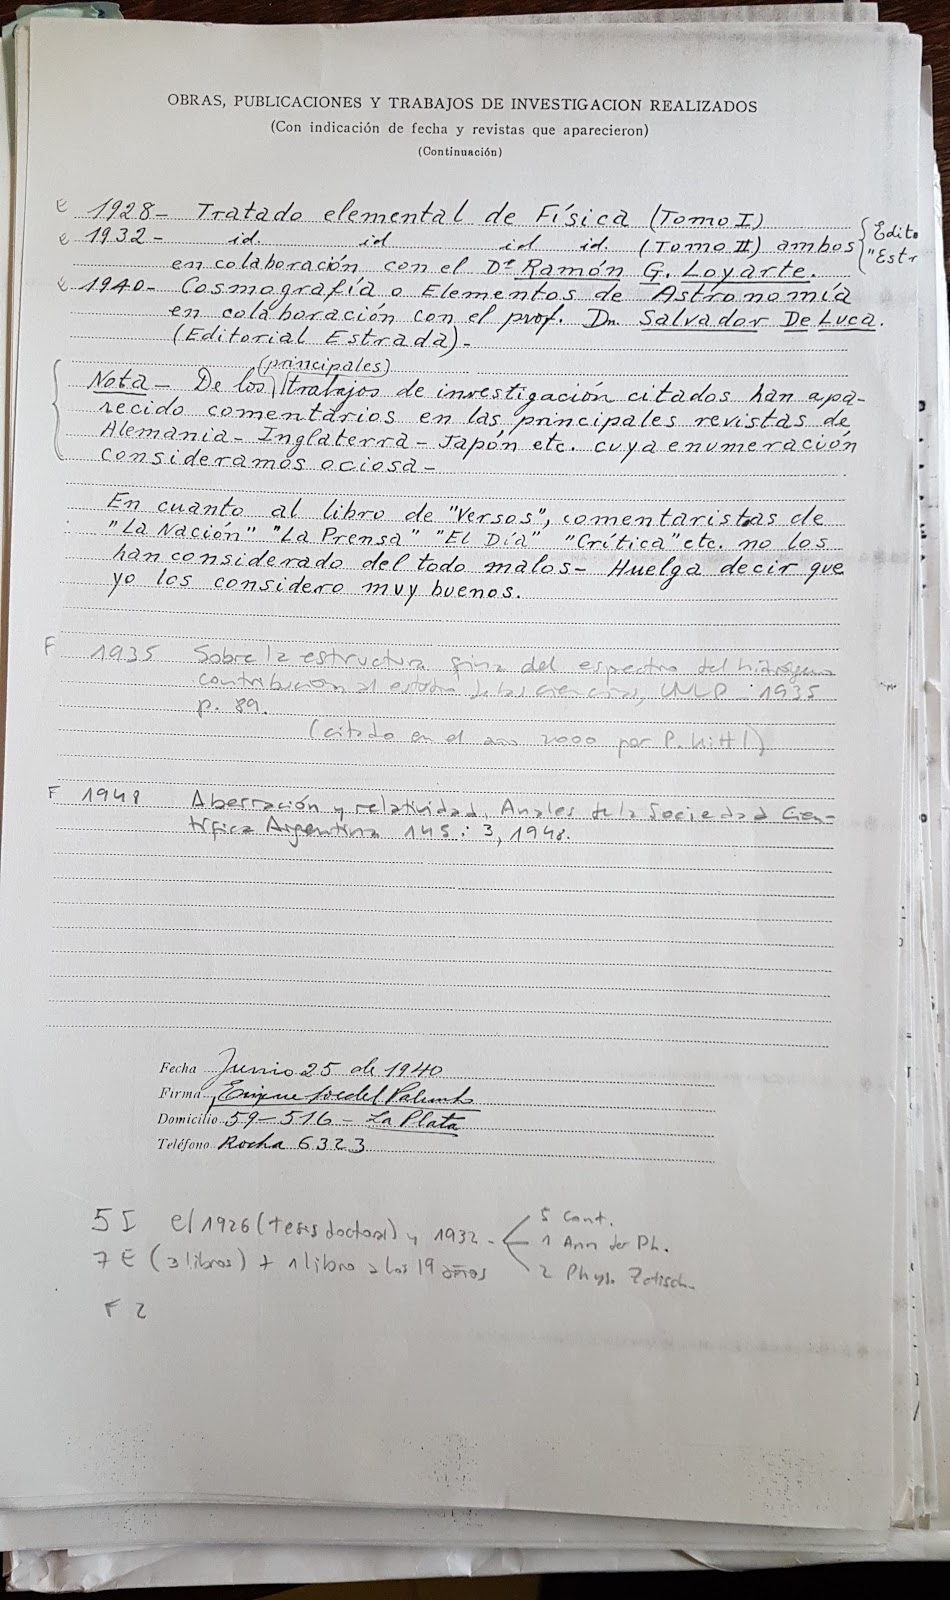 OBRAS, PUBLICACIONES Y TRABAJOS DE INVESTIGACION REALIZADOS
(Con indicación de fecha y revistas que aparecieron)
(Continuación)
E 1928- Tratado elemental de Física (Tomo I)
E 1932- id. id id id. (Tomo II) ambos
{ Edito
"Estr
en colaboración con el Dr Ramón G. Loyarte.
E 1940- Cosmografía o Elementos de Astronomía
en colaboración con el prof. Dn. Salvador De Luca.
(Editorial Estrada)-
(principales)
Nota- De los trabajos de investigación citados han apa-
recido comentarios en las principales revistas de
Alemania- Inglaterra- Japón etc. cuya enumeración
consideramos ociosa-
En cuanto al libro de "Versos", comentaristas de
"La Nación" "La Prensa" "El Día" "Crítica" etc. no los
han considerado del todo malos- Huelga decir que
yo los considero muy buenos.
F 1935 Sobre la estructura fina del espectro del hidrógeno
contribución al estudio de las ciencias, UNLP : 1935
p. 89.
(citado en el año 2000 por P.
F 1948 Aberración y relatividad, Anales de la Sociedad Cien-
tífica Argentina 145: 3, 1948.
Fecha Junio 25 de 1940
Firma Enrique Loedel Palumbo
Domicilio 59-516- La Plata
Teléfono Rocha 6323
5 I e/ 1926 (tesis doctoral) y 1932 -
5 Cont.
1 Ann der Ph.
2 Phys. Zeitsch.
7 E (3 libros) + 1 libro a los 19 años
F 2